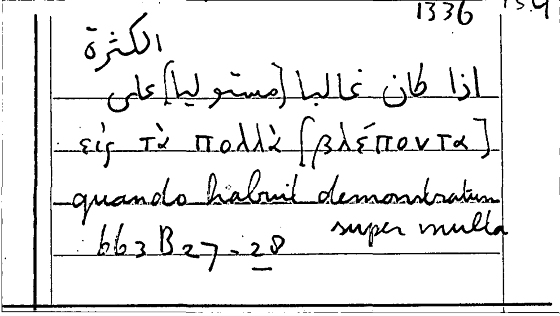 1336
الكثرة
اذا كان غالبا [مستوليا] على
εἰς τὰ πολλὰ [βλέποντα]
quando habuit demonstratum
super multa
663 B 27-28